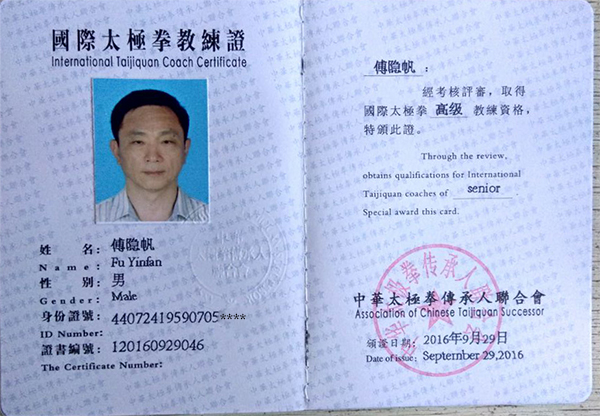 國際太極拳教練證
International Taijiquan Coach Certificate
姓名：傅隐帆
Name: Fu Yinfan
性別：男
Gender: Male
身份證號：44072419590705****
ID Number:
證書編號：120160929046
The Certificate Number:
傅隐帆：
經考核評審，取得
國際太極拳 高级 教練資格，
特頒此證。
Through the review,
obtains qualifications for International
Taijiquan coaches of senior.
Special award this card.
中華太極拳傳承人聯合會
Association of Chinese Taijiquan Successor
頒證日期：2016年9月29日
Date of issue: September 29,2016